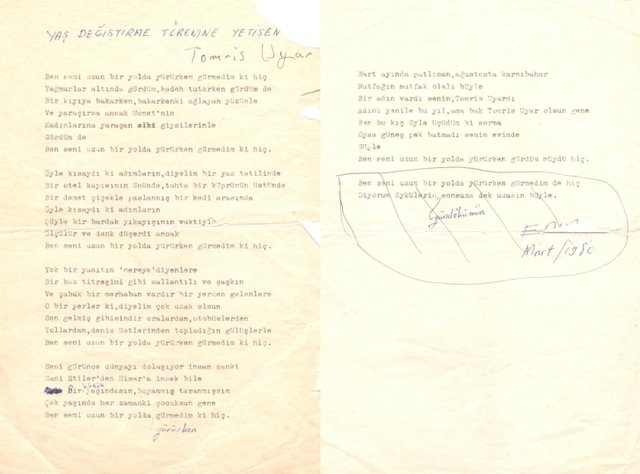 YAŞ DEĞİSTİRME TÖRENİNE YETİŞEN
Tomris Uyar
Ben seni uzun bir yolda yürürken görmedim ki hiç
Yağmurlar altında gördüm,kadeh tutarken gördüm de
Bir kıyıya bakarken,bakarkenki ağlayan yüzünle
Ve yaraşırsa ancak Monet'nin
Kadınlarına yaraşan giysilerinle
Gördüm de
Ben seni uzun bir yolda yürürken görmedim ki hiç.
Öyle kısaydı ki adımların,diyelim bir yaz tatilinde
Bir otel kapısının önünde,tahta bir köprünün üstünde
Bir demet çiçekle paslanmış bir kedi arasında
Öyle kısaydı ki adımların
Şöyle bir bardak yıkayışının vaktiyle
Ölçülür ve denk düşerdi ancak
Ben seni uzun bir yolda yürürken görmedim ki hiç.
Yok bir yanıtın 'nereye'diyenlere
Bir buz titreşimi gibi sallantılı ve şaşkın
Ve çabuk bir merhaban vardır bir yerden gelenlere
O bir yerler ki,diyelim çok uzak olsun
Sen gelmiş gibisindir oralardan,otobüslerden
Yollardan,deniz üstlerinden topladığın gülüşlerle
Ben seni uzun bir yolda yürürken görmedim ki hiç.
Seni görünce dünyayı dolaşıyor insan sanki
Hani Etiler'den Hisar'a insek bile
Bir yaşındasın,boyanmış taranmışsın
Çok yaşında her zamanki çocuksun gene
Ben seni uzun bir yolda görmedim ki hiç.
yürürken
Mart ayında patlıcan,ağustosta karnıbahar
Mutfağın mutfak olalı böyle
Bir adın vardı senin,Tomris Uyardı
Adını yenile bu yıl,ama bak Tomris Uyar olsun gene
Ben bu kış öyle üşüdüm ki sorma
Oysa güneş pek batmadı senin evinde
Söyle
Ben seni uzun bir yolda yürürken gördüm müydü hiç.
Ben seni uzun bir yolda yürürken görmedim de hiç
Diyorum öykülerin sonsuza dek uzasın böyle.
Gündökümün
Mart/1980